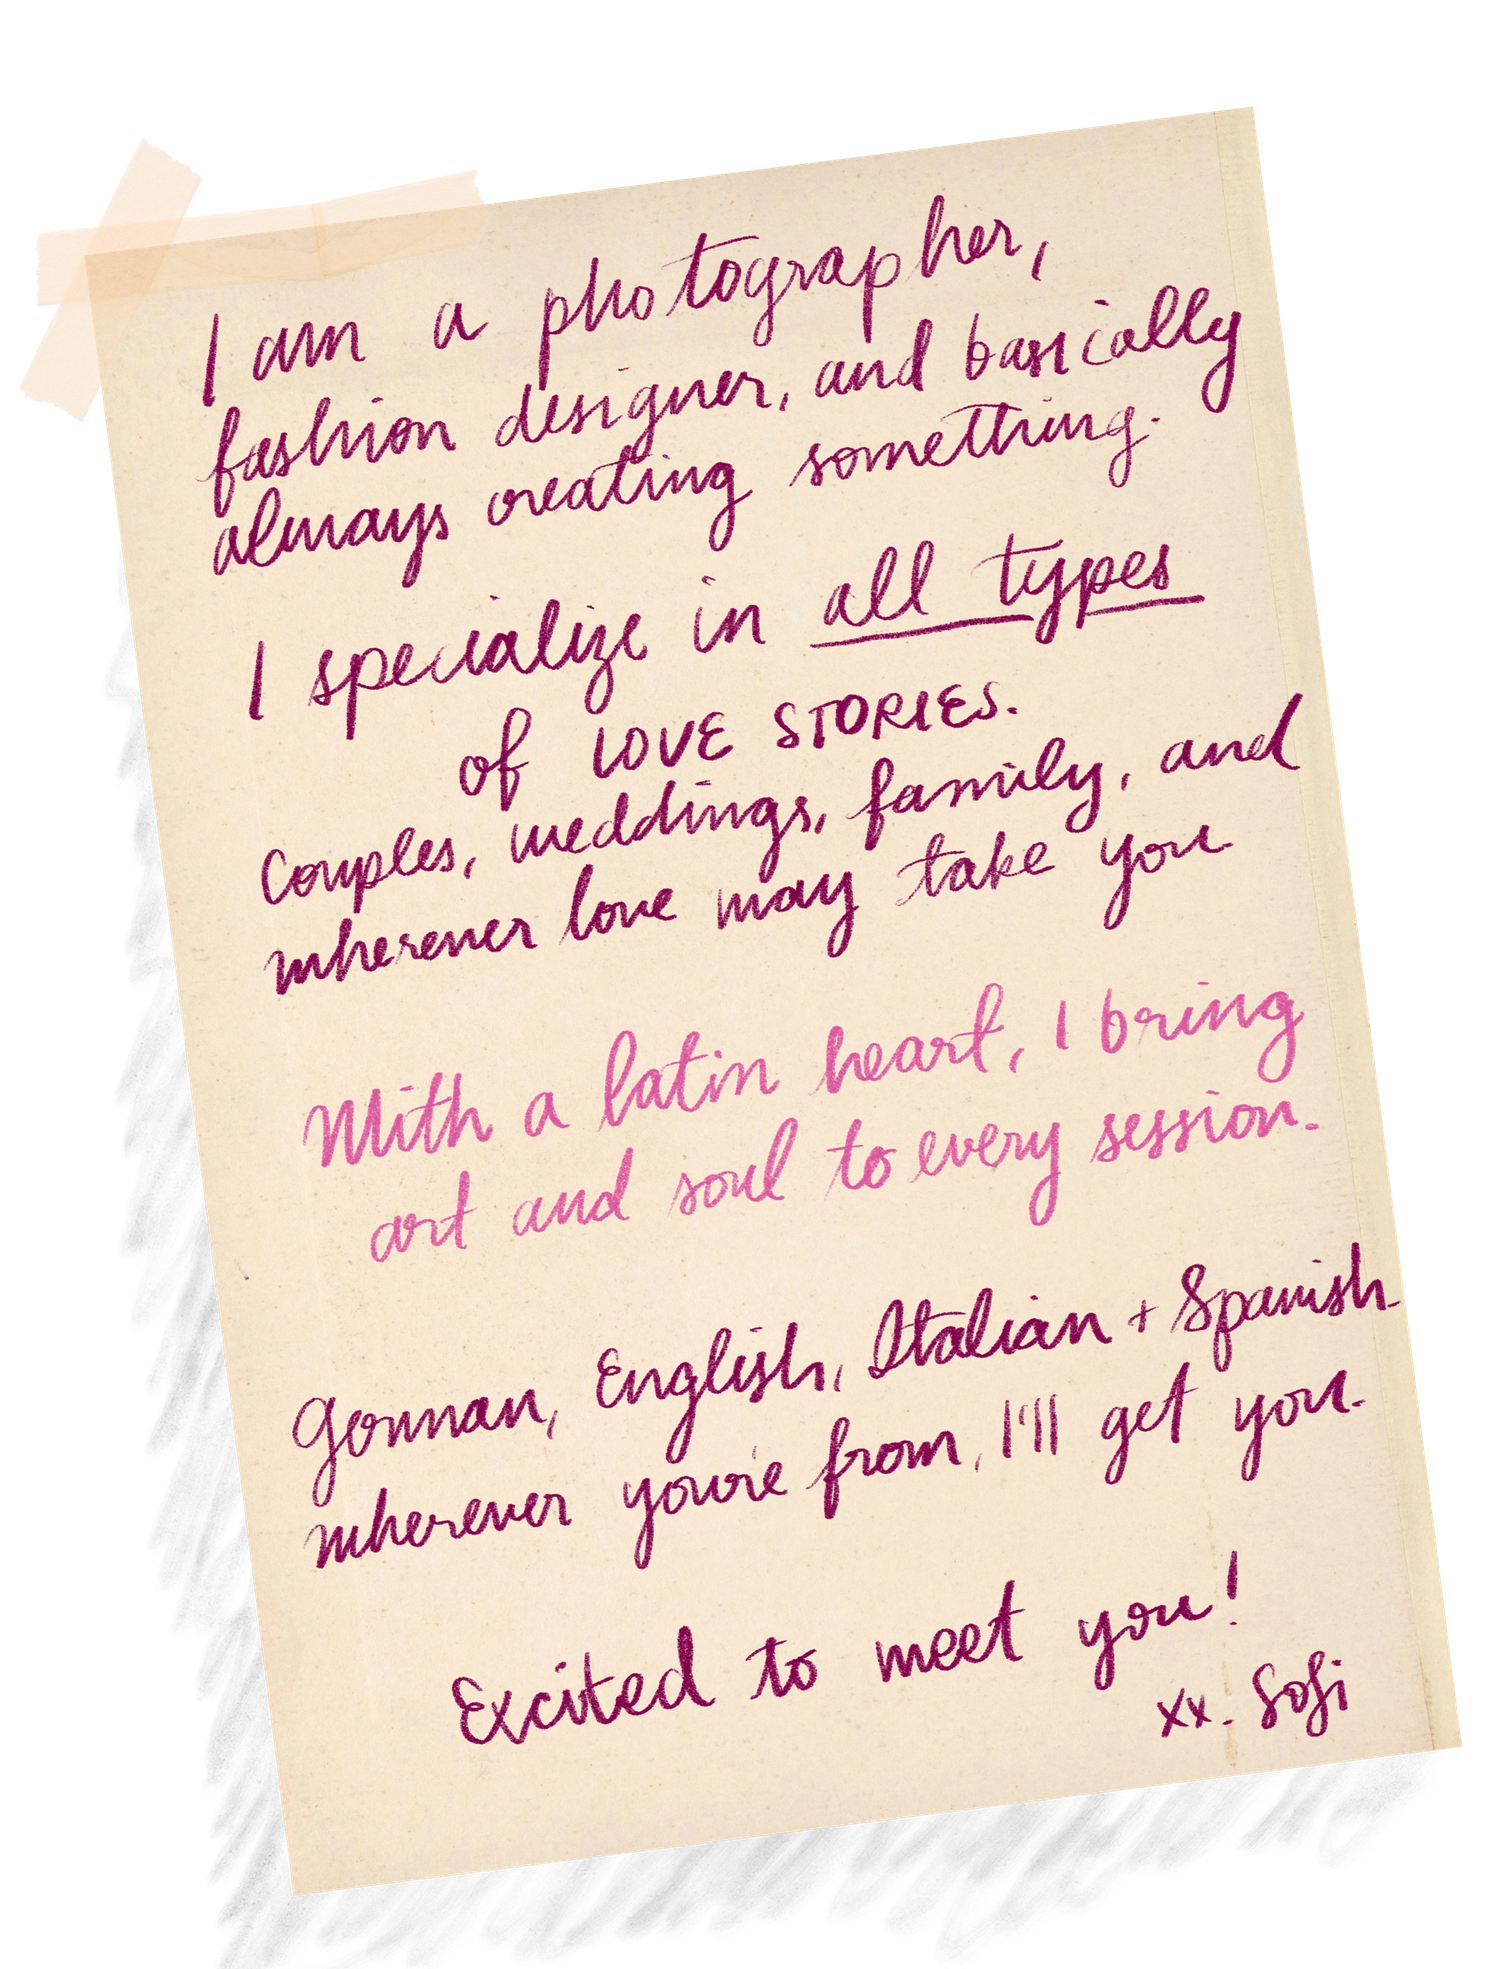 I am a photographer,
fashion designer, and basically
always creating something.
I specialize in all types
of LOVE STORIES.
Couples, weddings, family, and
wherever love may take you
With a latin heart, I bring
art and soul to every session.
German, English, Italian + Spanish
wherever you're from, I'll get you.
Excited to meet you!
xx. Sofi